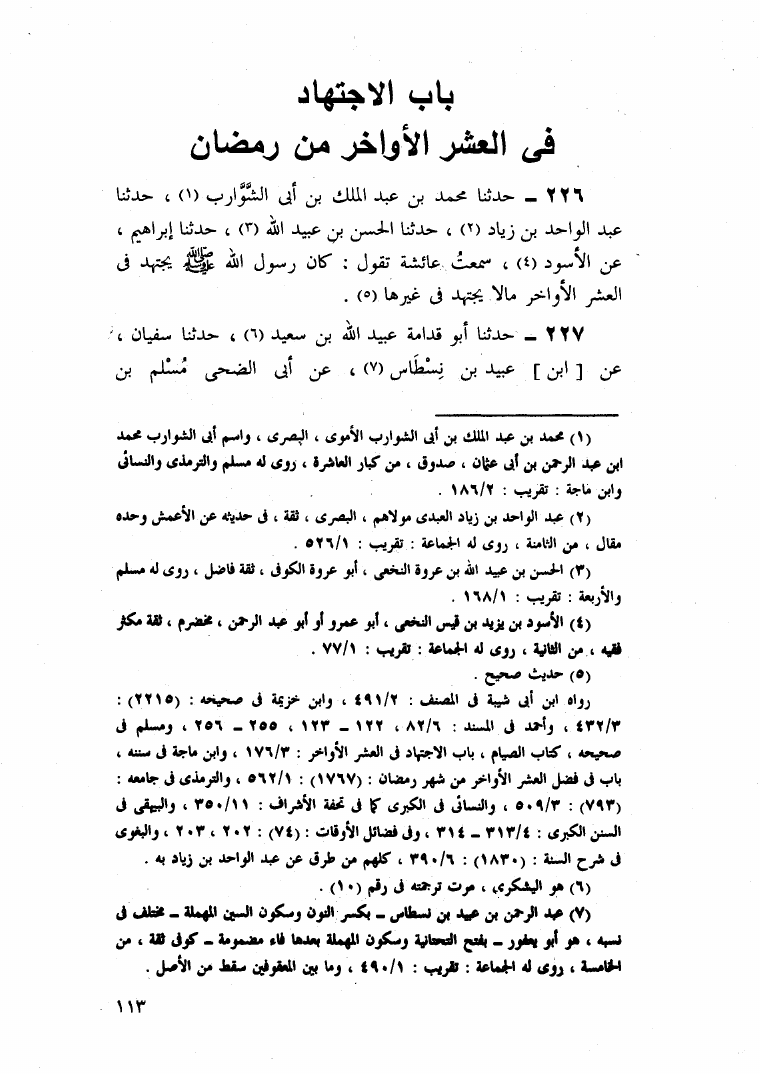 باب الاجتهاد
فى العشر الأواخر من رمضان
٢٢٦ ـ حدثنا محمد بن عبد الملك بن أبى الشَّوَّارب (١) ، حدثنا
عبد الواحد بن زياد (٢) ، حدثنا الحسن بن عبيد الله (٣) ، حدثنا إبراهيم ،
عن الأسود (٤) ، سمعتُ عائشة تقول : كان رسول الله ﷺ يجتهد فى
العشر الأواخر مالا يجتهد فى غيرها (٥) .
٢٢٧ ـ حدثنا أبو قدامة عبيد الله بن سعيد (٦) ، حدثنا سفيان ،
عن [ ابن ] عبيد بن نِسْطَاس (٧) ، عن أبى الضحى مُسْلم بن
(١) محمد بن عبد الملك بن أبى الشوارب الأموى ، البصرى ، واسم أبى الشوارب محمد
ابن عبد الرحمن بن أبى عثمان ، صدوق ، من كبار العاشرة ، روى له مسلم والترمذى والنسائى
وابن ماجة : تقريب : ١٨٦/٢ .
(٢) عبد الواحد بن زياد العبدى مولاهم ، البصرى ، ثقة ، فى حديثه عن الأعمش وحده
مقال ، من الثامنة ، روى له الجماعة : تقريب : ٥٢٦/١ .
(٣) الحسن بن عبيد الله بن عروة النخعى ، أبو عروة الكوفى ، ثقة فاضل ، روى له مسلم
والأربعة : تقريب : ١٦٨/١ .
(٤) الأسود بن يزيد بن قيس النخعى ، أبو عمرو أو أبو عبد الرحمن ، مخضرم ، ثقة مكثر
فقيه ، من الثانية ، روى له الجماعة : تقريب : ٧٧/١ .
(٥) حديث صحيح .
رواه ابن أبى شيبة فى المصنف : ٤٩١/٢ ، وابن خزيمة فى صحيحه : (٢٢١٥) :
٤٣٢/٣ ، وأحمد فى المسند : ٨٢/٦ ، ١٢٢ ـ ١٢٣ ، ٢٥٥ ـ ٢٥٦ ، ومسلم فى
صحيحه ، كتاب الصيام ، باب الاجتهاد فى العشر الأواخر : ١٧٦/٣ ، وابن ماجة فى سننه ،
باب فى فضل العشر الأواخر من شهر رمضان : (١٧٦٧) : ٥٦٢/١ ، والترمذى فى جامعه :
(٧٩٣) : ٥٠٩/٣ ، والنسائى فى الكبرى كما فى تحفة الأشراف : ٣٥٠/١١ ، والبيهقى فى
السنن الكبرى : ٣١٣/٤ ـ ٣١٤ ، وفى فضائل الأوقات : (٧٤) : ٢٠٢ ، ٢٠٣ ، والبغوى
فى شرح السنة : (١٨٣٠) : ٣٩٠/٦ ، كلهم من طرق عن عبد الواحد بن زياد به .
(٦) هو اليشكرى ، مرت ترجمته فى رقم (١٠) .
(٧) عبد الرحمن بن عبيد بن نسطاس ـ بكسر النون وسكون السين المهملة ـ مختلف فى
نسبه ، هو أبو يعفور ـ بفتح التحتانية وسكون المهملة بعدها فاء مضمومة ـ كوفى ثقة ، من
الخامسة ، روى له الجماعة : تقريب : ٤٩٠/١ ، وما بين المعقوفين سقط من الأصل .
١١٣